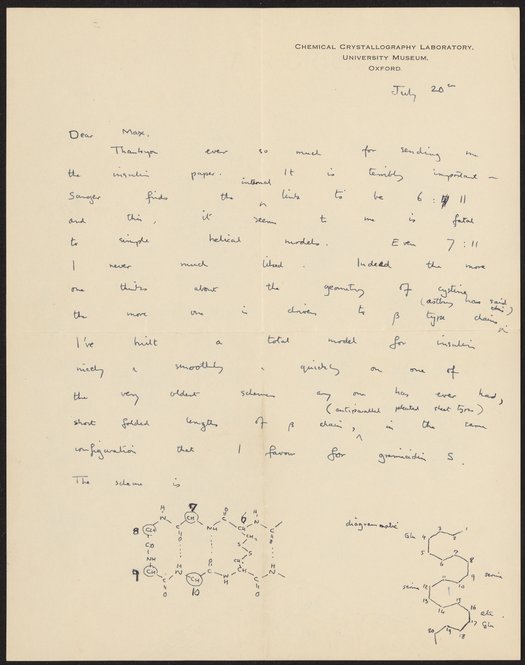 CHEMICAL CRYSTALLOGRAPHY LABORATORY.
UNIVERSITY MUSEUM.
OXFORD.
July 20th
Dear Max.
Thankyou ever so much for sending me
the insulin paper. It is terribly important –
Sanger finds the internal links to be 6 : 11
and this, it seems to me is fatal
to simple helical models. Even 7 : 11
I never much liked. Indeed the more
one thinks about the geometry of cystine
(Astbury has said this)
the more one is driven to β type chains
I've built a total model for insulin
nicely & smoothly & quickly on one of
the very oldest schemes any one has ever had,
(antiparallel pleated sheet type)
short folded lengths of β chain, in the same
configuration that I favour for gramicidin S.
The scheme is
7
8
6
9
10
CH
CH
CH
CH
NH
CO
diagrammatic
Gln 4 3 2 1
5 6 7 8
serine
10 9
11
serine 12
13 14 15 16
17
Gln
20 19 18